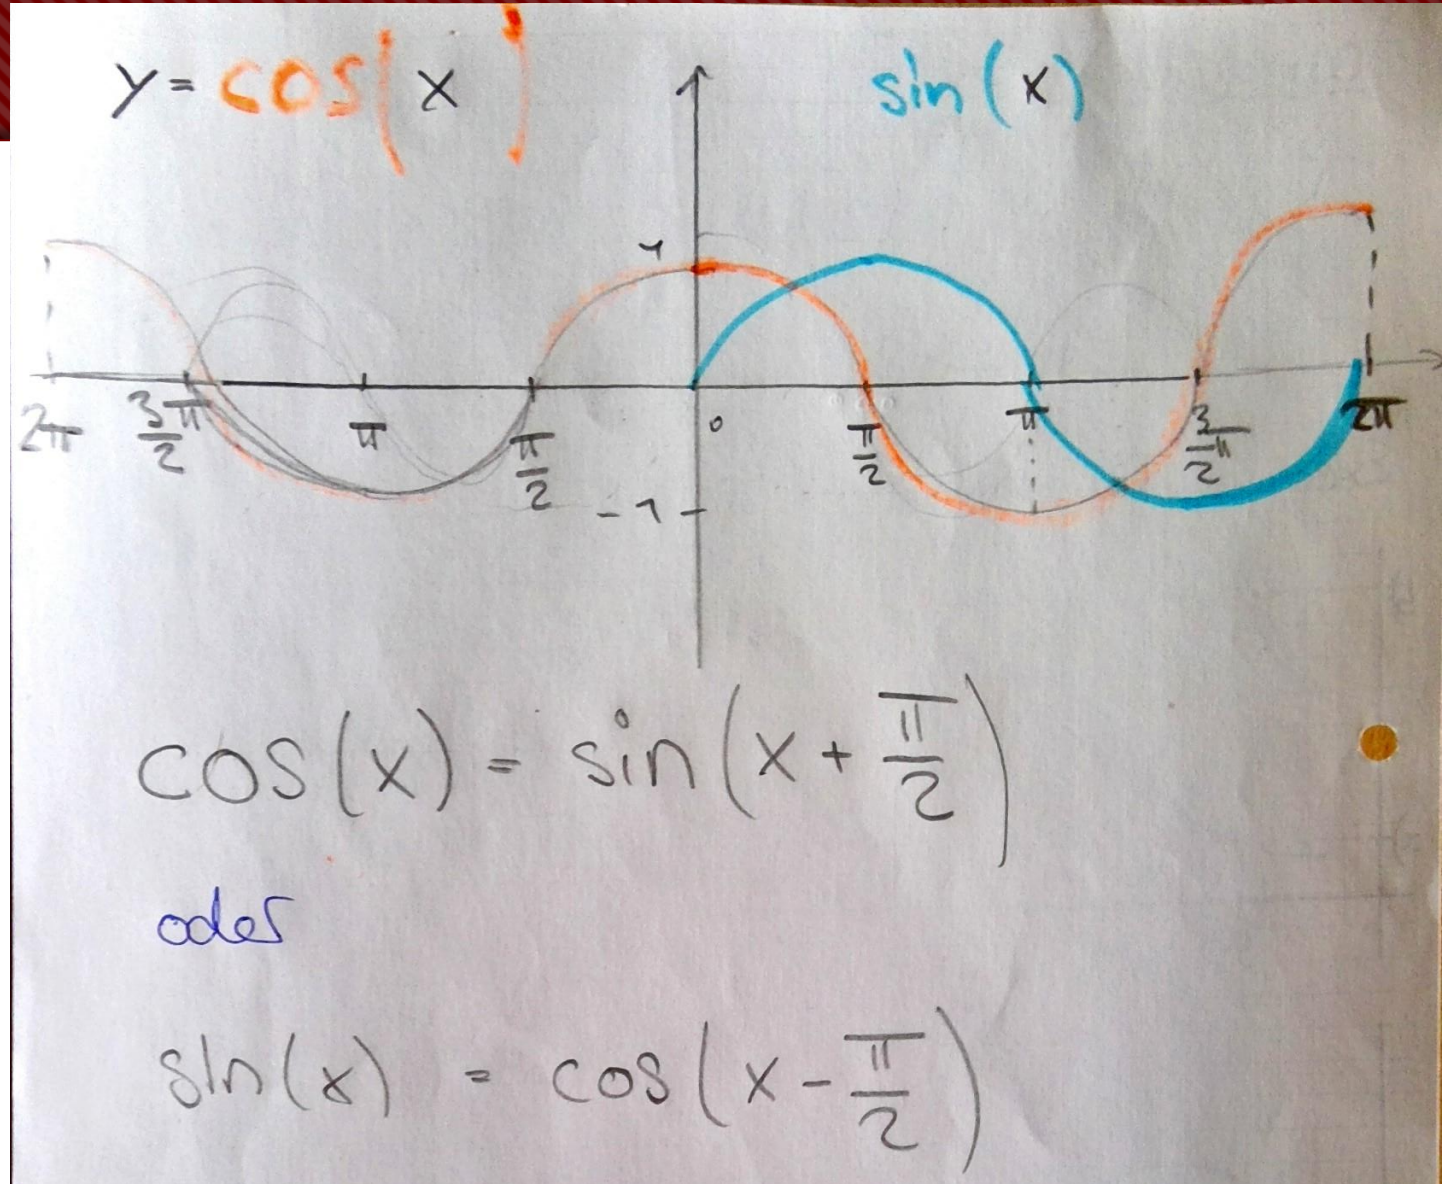 y = cos(x)
sin(x)
1
2π 3/2 π π π/2 0 π/2 π 3/2 π 2π
-1
cos(x) = sin(x + π/2)
oder
sin(x) = cos(x - π/2)